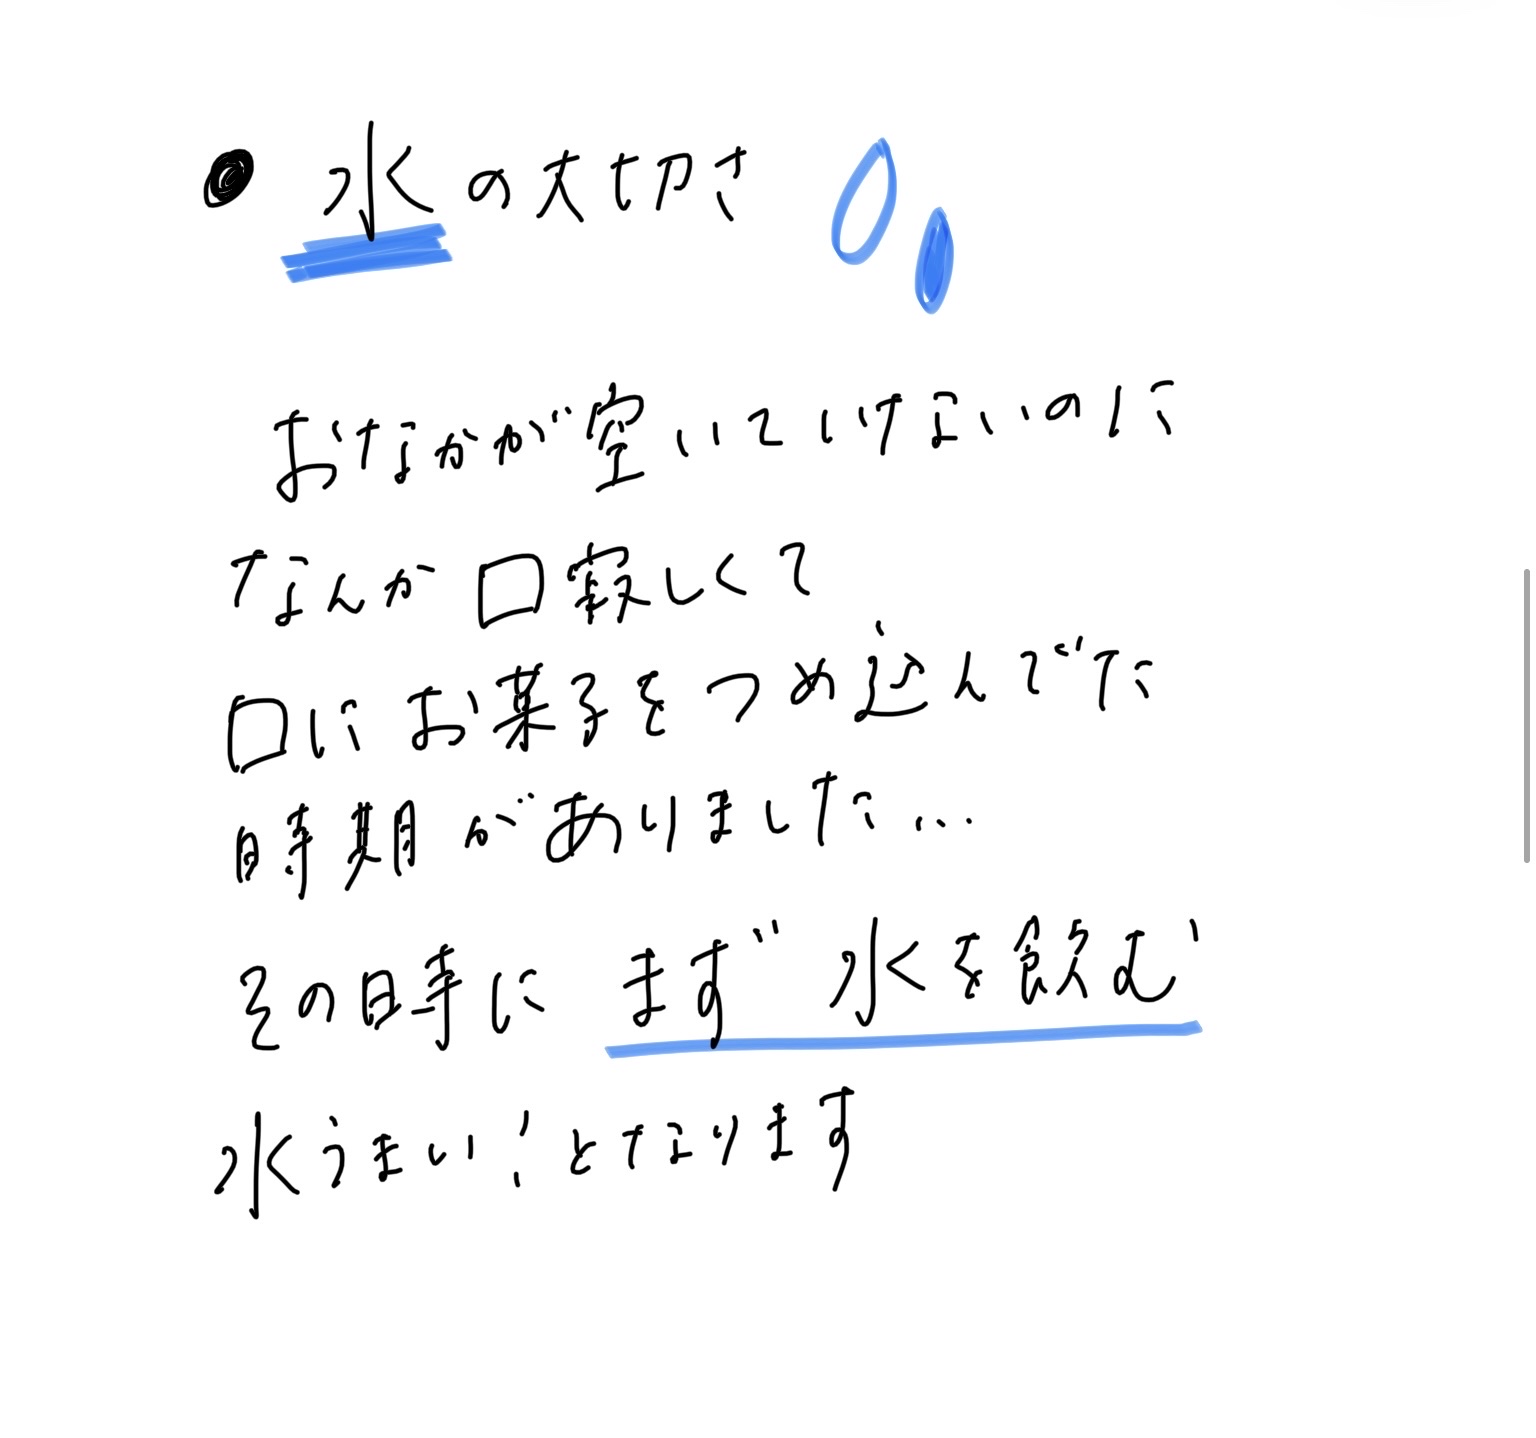 ● 水の大切さ
おなかが空いていけないのに
なんか口寂しくて
口にお菓子をつめ込んでた
時期がありました...
その時に まず 水を飲む
水うまい!となります